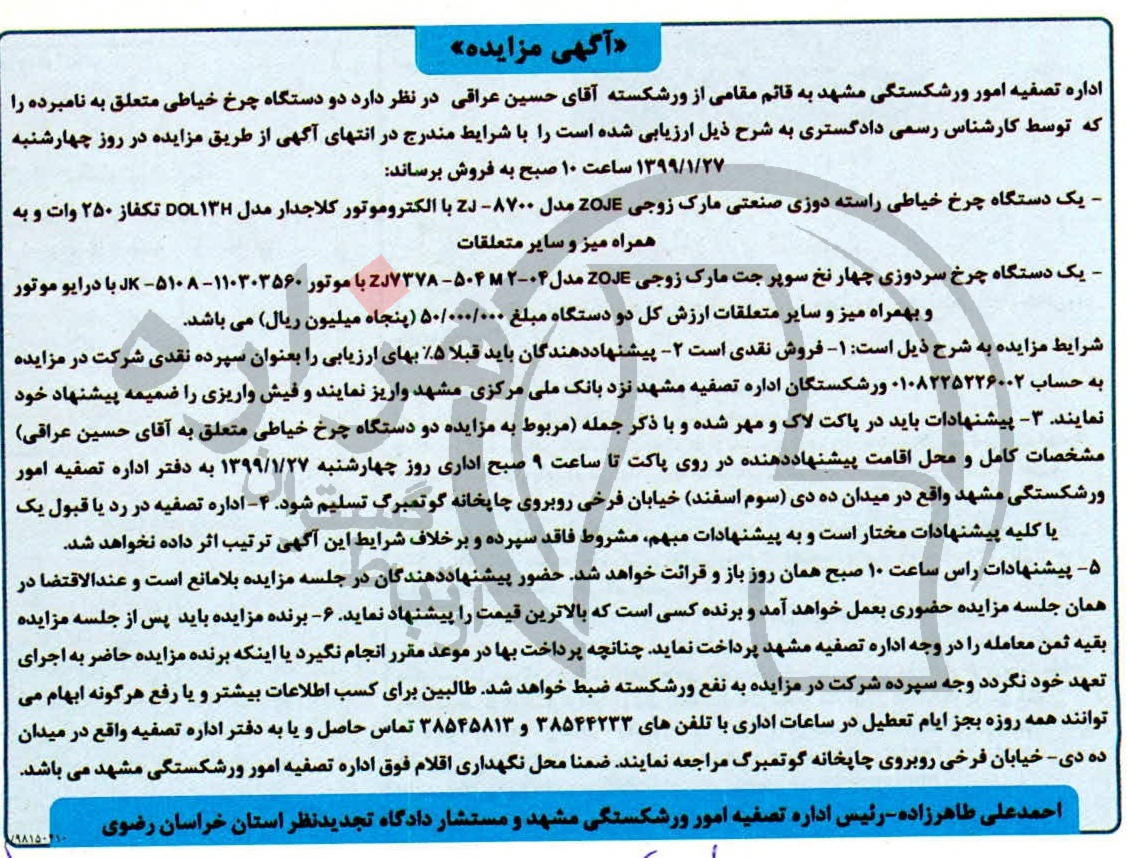 «آگهی مزایده»
اداره تصفیه امور ورشکستگی مشهد به قائم مقامی از ورشکسته آقای حسین عراقی در نظر دارد دو دستگاه چرخ خیاطی متعلق به نامبرده را
که توسط کارشناس رسمی دادگستری به شرح ذیل ارزیابی شده است را با شرایط مندرج در انتهای آگهی از طریق مزایده در روز چهارشنبه
۱۳۹۹/۱/۲۷ ساعت ۱۰ صبح به فروش برساند:
- یک دستگاه چرخ خیاطی راسته دوزی صنعتی مارک زوجی ZOJE مدل ZJ -۸۷۰۰ با الکتروموتور کلاجدار مدل DOL۱۳H تکفاز ۲۵۰ وات و به
همراه میز و سایر متعلقات
- یک دستگاه چرخ سردوزی چهار نخ سوپر جت مارک زوجی ZOJE مدل ZJ۷۳۷۸-۵۰۴ M ۲-۰۴ با موتور JK -۵۱۰۸ -۱۱۰۳۰۳۵۶۰ با درایو موتور
و بهمراه میز و سایر متعلقات ارزش کل دو دستگاه مبلغ ۵۰/۰۰۰/۰۰۰ (پنجاه میلیون ریال) می باشد.
شرایط مزایده به شرح ذیل است: ۱- فروش نقدی است ۲- پیشنهاددهندگان باید قبلا ۵٪ بهای ارزیابی را بعنوان سپرده نقدی شرکت در مزایده
به حساب ۰۱۰۸۲۲۵۲۲۶۰۰۲ ورشکستگان اداره تصفیه مشهد نزد بانک ملی مرکزی مشهد واریز نمایند و فیش واریزی را ضمیمه پیشنهاد خود
نمایند. ۳- پیشنهادات باید در پاکت لاک و مهر شده و با ذکر جمله (مربوط به مزایده دو دستگاه چرخ خیاطی متعلق به آقای حسین عراقی)
مشخصات کامل و محل اقامت پیشنهاددهنده در روی پاکت تا ساعت ۹ صبح اداری روز چهارشنبه ۱۳۹۹/۱/۲۷ به دفتر اداره تصفیه امور
ورشکستگی مشهد واقع در میدان ده دی (سوم اسفند) خیابان فرخی روبروی چاپخانه گوتمبرگ تسلیم شود. ۴- اداره تصفیه در رد یا قبول یک
یا کلیه پیشنهادات مختار است و به پیشنهادات مبهم، مشروط فاقد سپرده و برخلاف شرایط این آگهی ترتیب اثر داده نخواهد شد.
۵- پیشنهادات راس ساعت ۱۰ صبح همان روز باز و قرائت خواهد شد. حضور پیشنهاددهندگان در جلسه مزایده بلامانع است و عندالاقتضا در
همان جلسه مزایده حضوری بعمل خواهد آمد و برنده کسی است که بالاترین قیمت را پیشنهاد نماید. ۶- برنده مزایده باید پس از جلسه مزایده
بقیه ثمن معامله را در وجه اداره تصفیه مشهد پرداخت نماید. چنانچه پرداخت بها در موعد مقرر انجام نگیرد یا اینکه برنده مزایده حاضر به اجرای
تعهد خود نگردد وجه سپرده شرکت در مزایده به نفع ورشکسته ضبط خواهد شد. طالبین برای کسب اطلاعات بیشتر و یا رفع هرگونه ابهام می
توانند همه روزه بجز ایام تعطیل در ساعات اداری با تلفن های ۳۸۵۴۴۲۳۳ و ۳۸۵۴۵۸۱۳ تماس حاصل و یا به دفتر اداره تصفیه واقع در میدان
ده دی- خیابان فرخی روبروی چاپخانه گوتمبرگ مراجعه نمایند. ضمنا محل نگهداری اقلام فوق اداره تصفیه امور ورشکستگی مشهد می باشد.
احمدعلی طاهرزاده-رئیس اداره تصفیه امور ورشکستگی مشهد و مستشار دادگاه تجدیدنظر استان خراسان رضوی